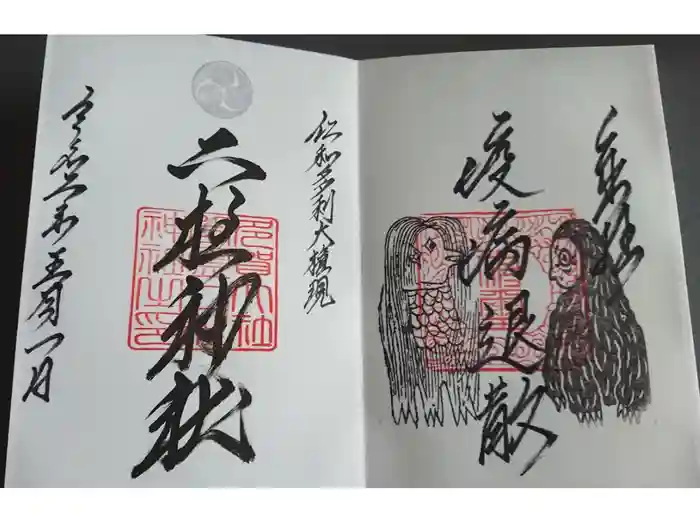 奉拝
疫病退散
仁和多利大権現
二柱神社
令和二年五月一日